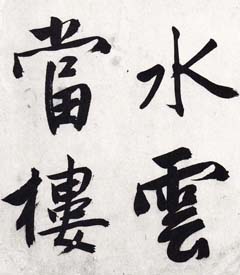 水雲
當樓